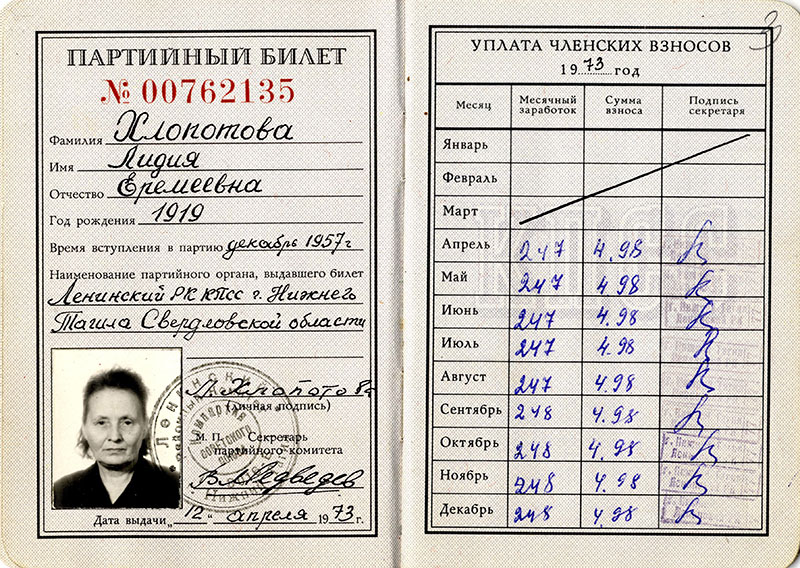 ПАРТИЙНЫЙ БИЛЕТ
№ 00762135
Фамилия Хлопотова
Имя Лидия
Отчество Еремеевна
Год рождения 1919
Время вступления в партию декабрь 1957 г
Наименование партийного органа, выдавшего билет
Ленинский РК КПСС г. Нижнего
Тагила Свердловской области
Л. Хлопотова
(Личная подпись)
М. П. Секретарь
партийного комитета
В. Медведев
Дата выдачи „12" апреля 1973 г.
УПЛАТА ЧЛЕНСКИХ ВЗНОСОВ
1973 год
Месяц Месячный заработок Сумма взноса Подпись секретаря
Январь
Февраль
Март
Апрель 247 4.98
Май 247 4.98
Июнь 247 4.98
Июль 247 4.98
Август 247 4.98
Сентябрь 248 4.98
Октябрь 248 4.98
Ноябрь 248 4.98
Декабрь 248 4.98